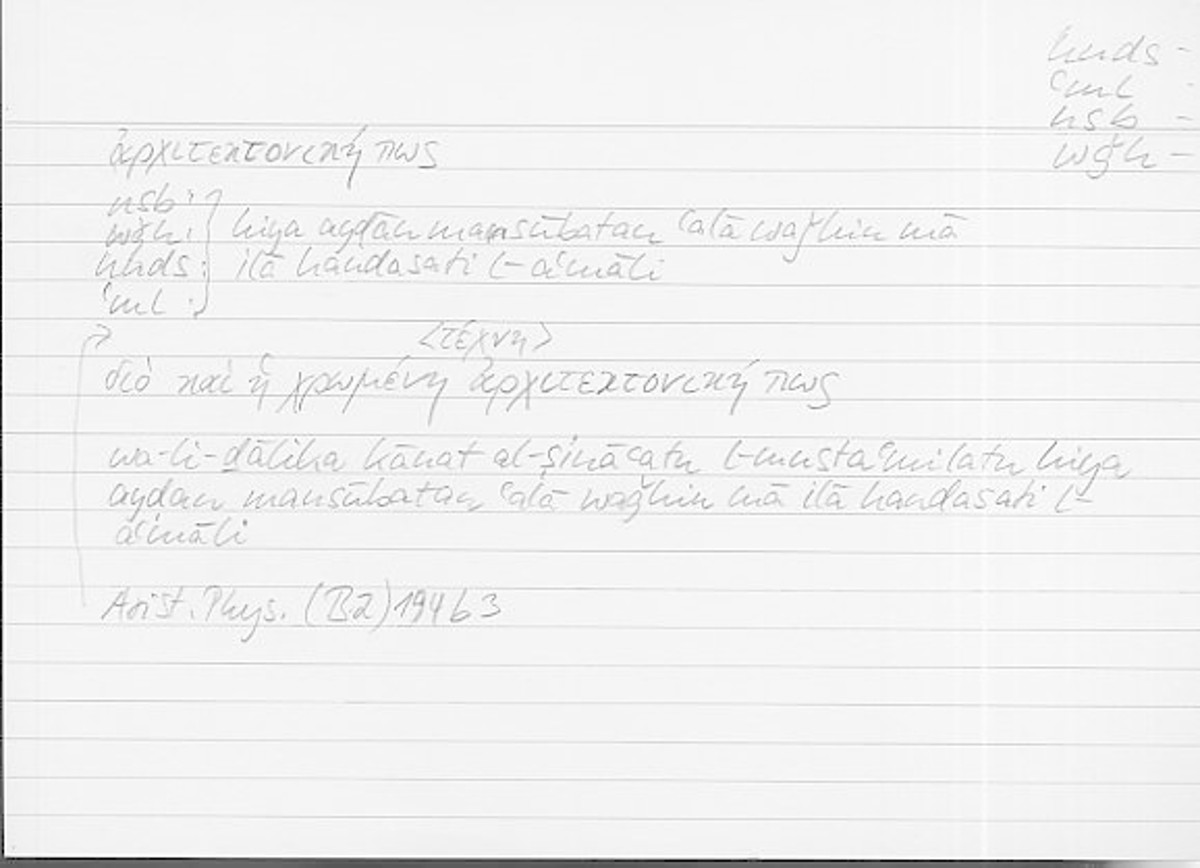 hnds -
ʿml -
nsb -
wǧh -
ἀρχιτεκτονική πως
nsb :
wǧh : hiya ayḍan mansūbatan ʿalā waǧhin mā
hnds : ilā handasati l-aʿmāli
ʿml :
<τέχνη>
διὸ καὶ ἡ χρωμένη ἀρχιτεκτονική πως
wa-li-ḏālika kānat al-ṣināʿatu l-mustaʿmilatu hiya
ayḍan mansūbatan ʿalā waǧhin mā ilā handasati l-
aʿmāli
Arist. Phys. (B2) 194b3